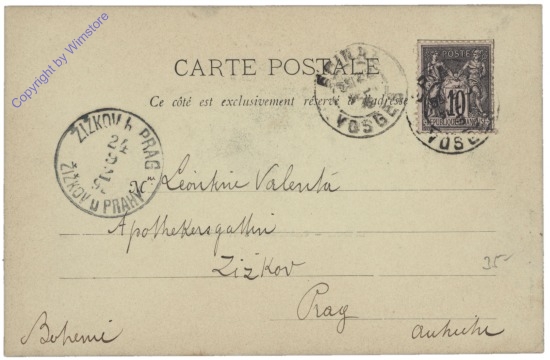 Copyright by Wimstore
CARTE POSTALE
Ce côté est exclusivement réservé à l'adresse
POSTE
10
VOSGES
VOSGES
ŽIŽKOV b. PRAG
ŽIŽKOV u PRAHY
Leontine Valentá
Apothekersgattin
Zizkov
Prag
Bohemé
Autriche
35-